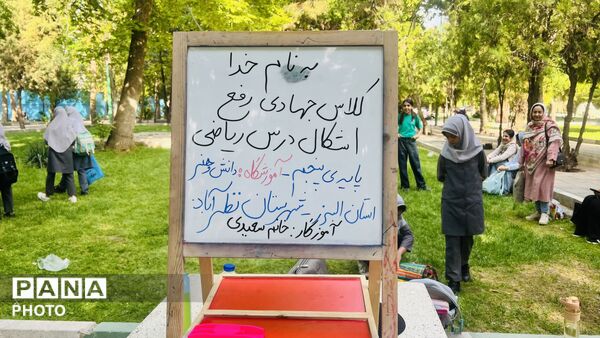 به نام خدا
کلاس جهادی رفع
اشکال درس ریاضی
پایه‌ی پنجم - آموزشگاه: دانش و هنر
استان البرز - شهرستان نظرآباد
آموزگار: خانم سعیدی
PANA
PHOTO